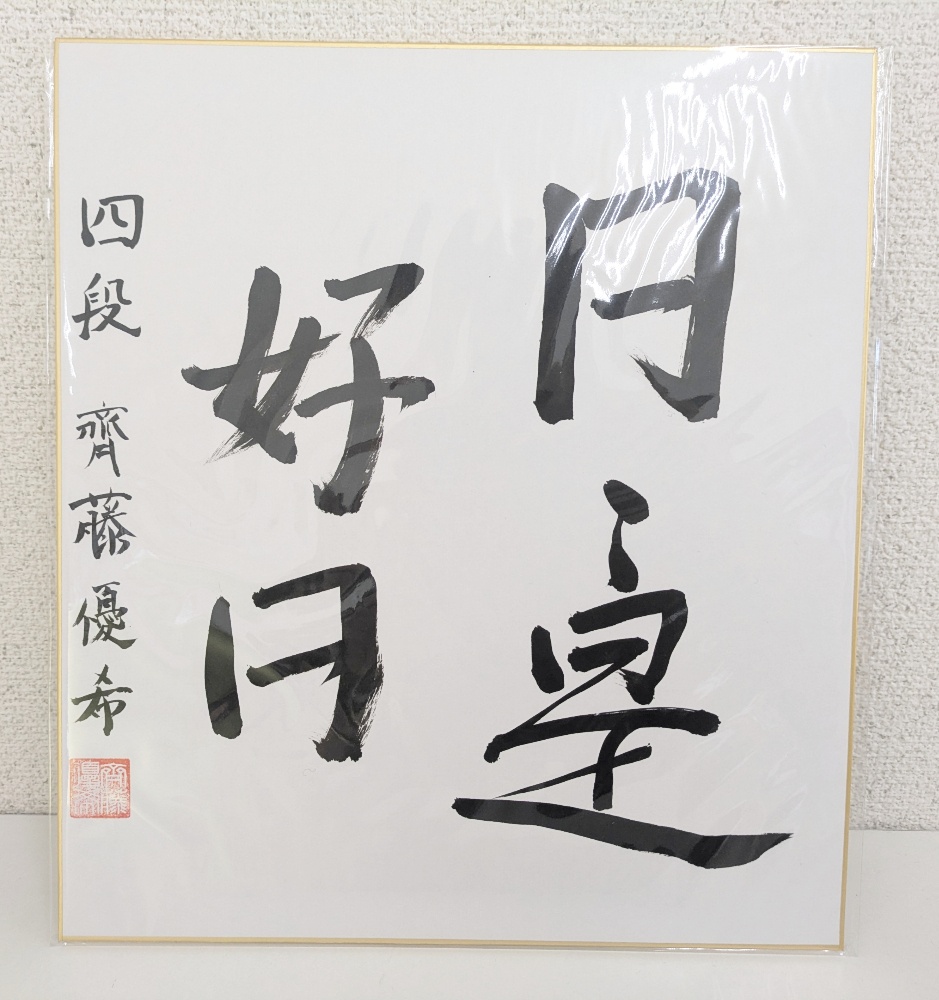 日々是
好日
四段 齊藤優希
齊藤
優希